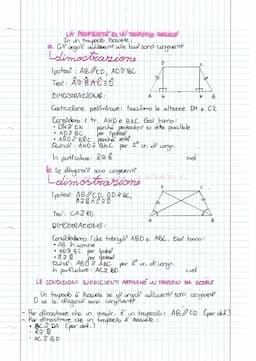 LE PROPRIETÀ DI UN TRAPEZIO ISOSCELE
In un trapezio isoscele:
a. Gli angoli adiacenti alle basi sono congruenti
dimostrazione
Ipotesi: AB//CD, AD≅BC
Tesi:
DIMOSTRAZIONE:
Costruzione preliminare: tracciamo le altezze DH e CK
Consideriamo i tr. AHD e BKC. Essi hanno:
• DH≅CK perché
• AD≅BC per ipotesi
• perché retti
Quindi: AHD≅BKC per
In particolare: cvd
b. le diagonali sono congruenti
dimostrazione
Ipotesi: AB//CD, AD≅BC,
Tesi: CA≅BD
DIMOSTRAZIONE:
Consideriamo i due triangoli ABD e ABC. Essi hanno:
• AB in comune
• AD≅BC per ipotesi
• per ipotesi
Quindi: ABD≅ABC per
In particolare: AC≅BD cvd
LE CONDIZIONI SUFFICIENTI AFFINCHÉ UN TRAPEZIO SIA ISOSCELE
Un trapezio è isoscele se gli angoli adiacenti sono congruenti
O se le diagonali sono congruenti
- Per dimostrare che un quadr. è un trapezio: AB//CD (per def.)
- Per dimostrare che un trapezio è isoscele:
• BC≅DA (per def.)
•
• AC≅BD